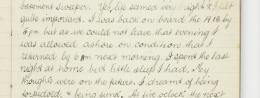 basement sweeper. Yes, he seemed very bright & felt
quite important. I was back on board the H.Q. by
6 pm but as we could not leave that evening I
was allowed ashore on condition that I
returned by 6 am next morning. I spent the last
night at home but little sleep I had. My
thoughts were on the future. I dreamt of being
torpedoed & being sunk. At five oclock the next